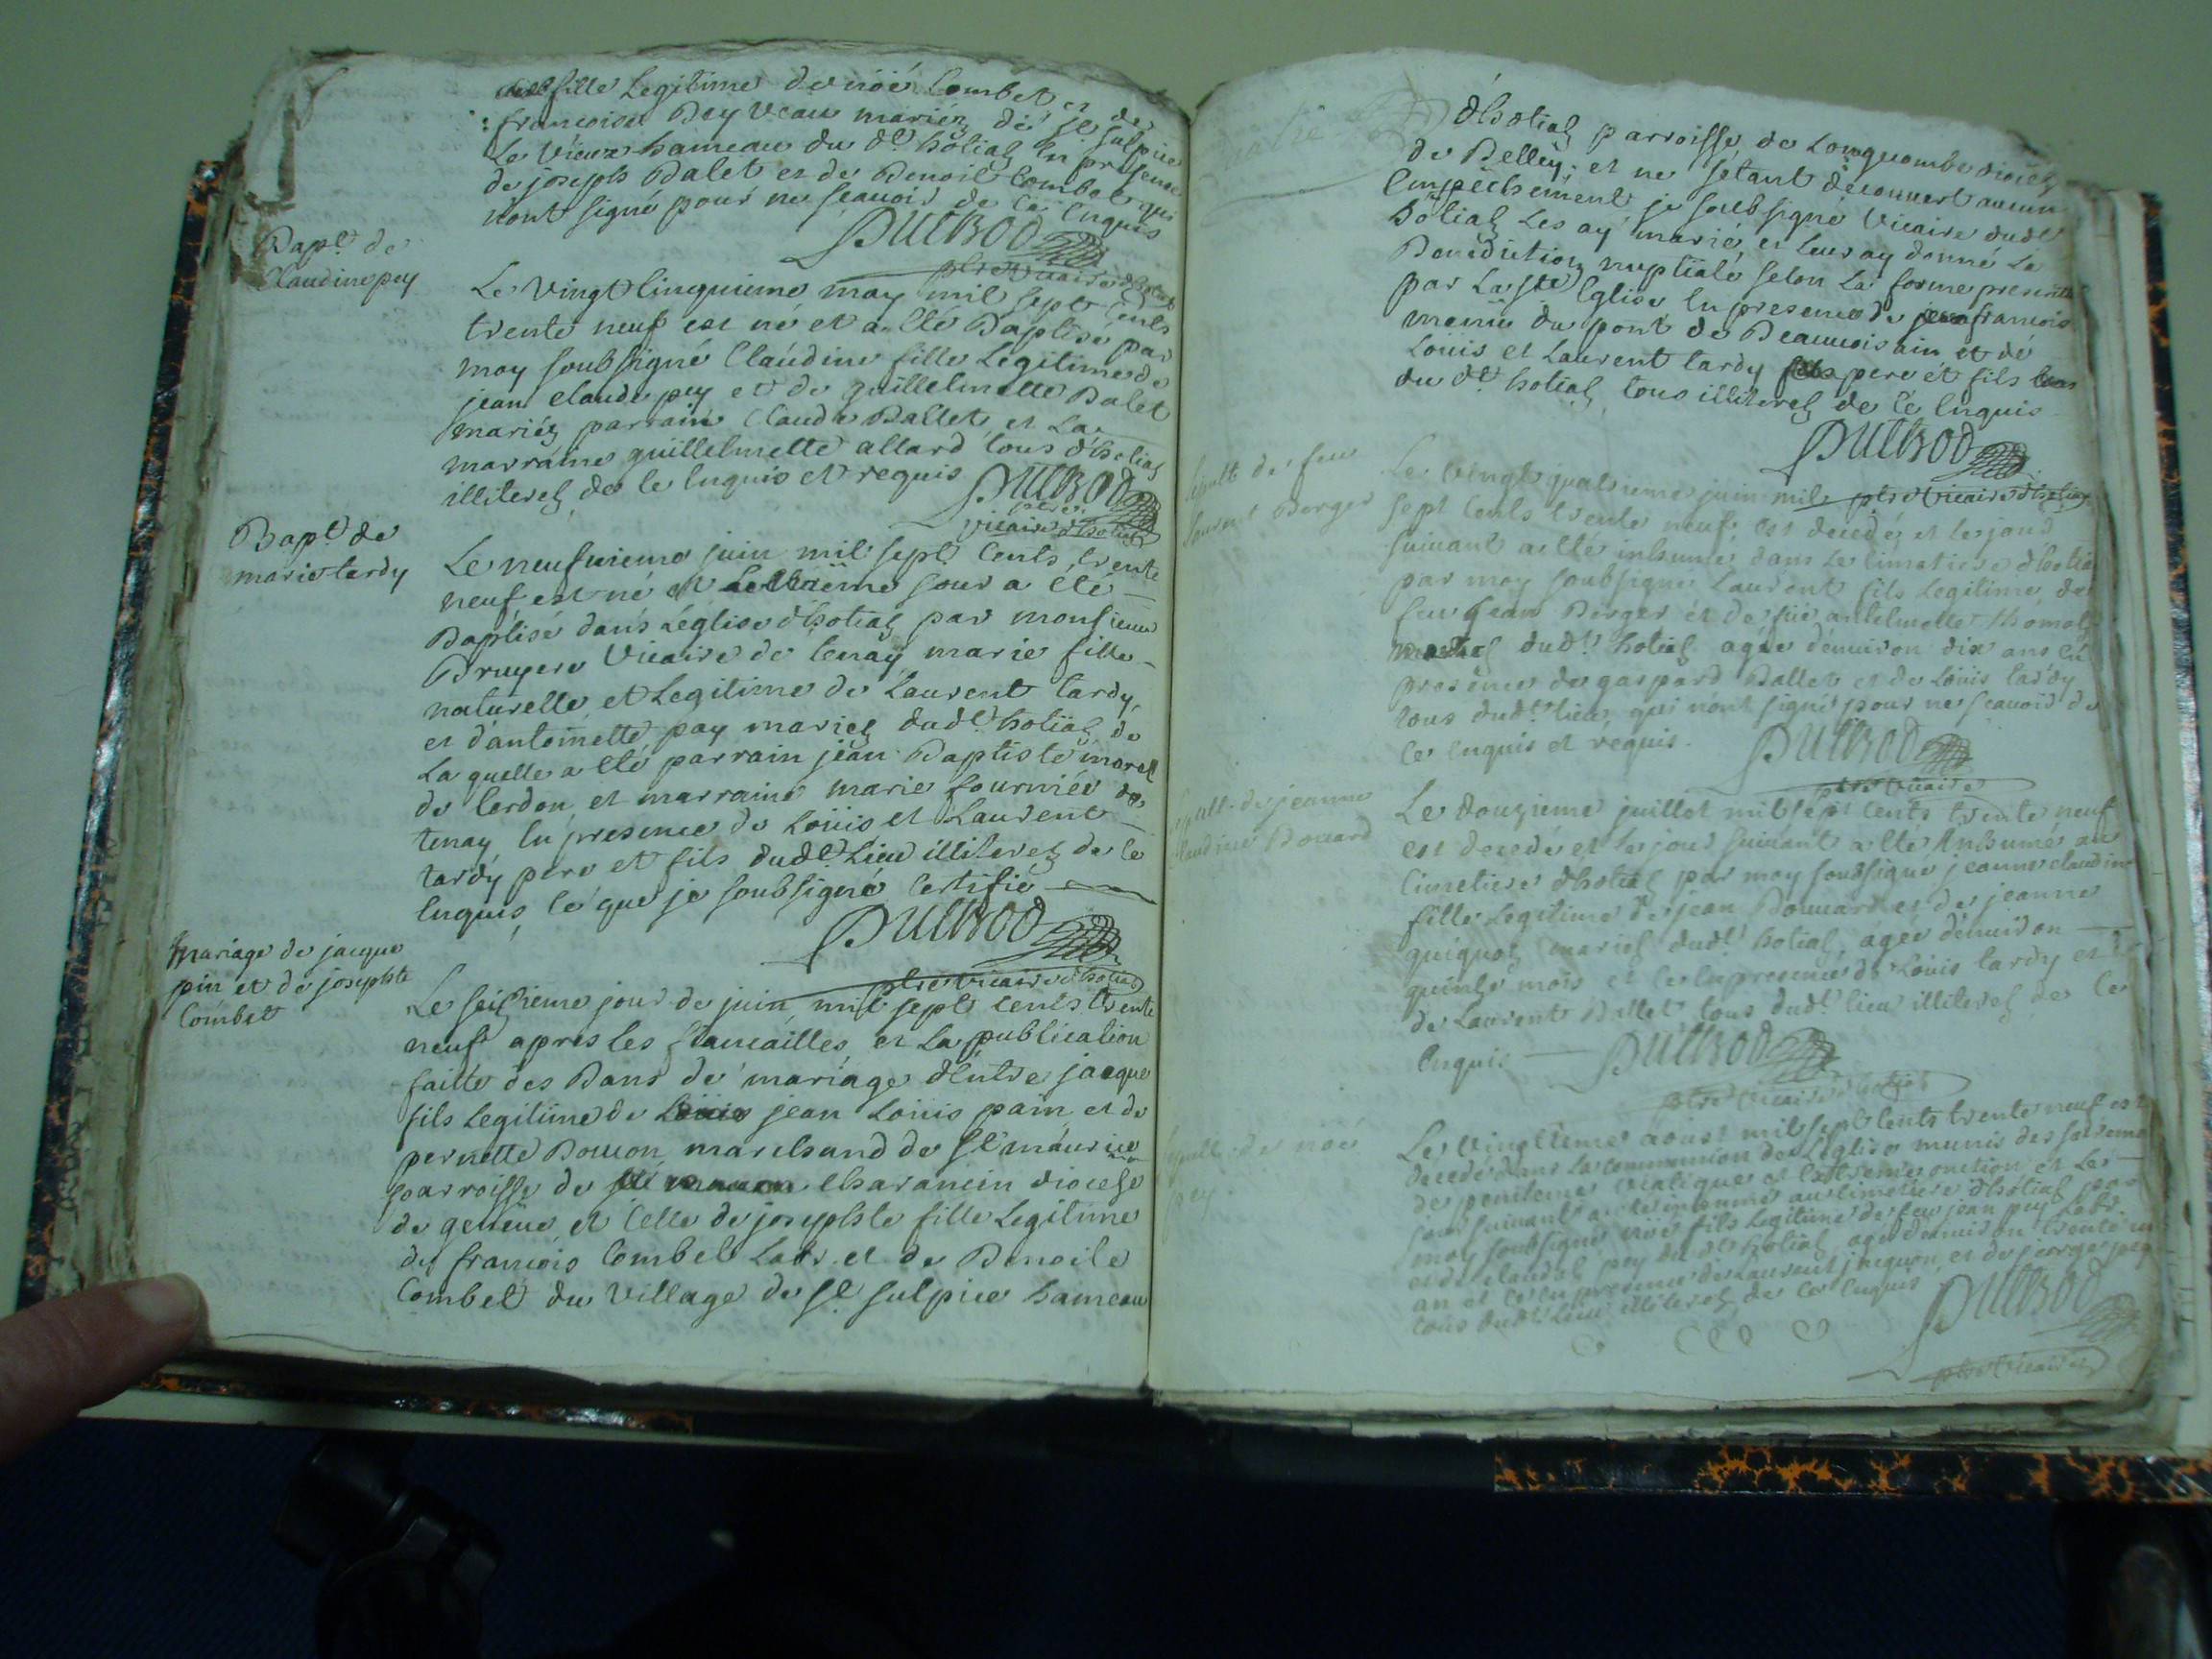 fille Legitime de noé Combet et de
francoise Bey Veau mariéz de st sulpice
Le Vieux hameau du dt hotiaz En presence
de joseph Balet et de Benoit Combet qui
nont signé pour ne scauoir de ce Enquis
Dulbod
ptre vicaire dhotiaz
Bapt. de
Claudine pey
Le Vingt Cinquieme may mil sept Cents
trente neuf est né et a eté Baptisé par
moy soubsigné Claudine fille Legitime de
jean claude pey et de guillelmette Balet
mariéz parrain Claude Ballet et La
marraine guillelmette allard tous dhotiaz
illiterez de Ce Enquis et requis
Dulbod
ptre
vicaire dhotiaz
Bapt de
marie tardy
Le neufuieme juin mil sept Cents trente
neuf est né et Le jour a eté
Baptisé dans Léglise dhotiaz par monsieur
Bruyere Vicaire de tenay marie fille
naturelle et Legitime de Laurent tardy
et dantoinette pay mariez dudt hotiaz de
La quelle a eté parrain jean Baptiste morel
de Cerdon et marraine marie fournier de
tenay En presence de Loüis et Laurent
tardy pere et fils dudt Lieu illiterez de Ce
Enquis, Ce que je soubsigné Certifie
Dulbod
ptre vicaire dhotiaz
Mariage de jacque
pin et de josephte
Combet
Le seizieme jour de juin mil sept cents trente
neuf apres les fiancailles et La publication
faitte des Bans de mariage dEntre jacque
fils Legitime de Loüis jean Loüis pain et de
pernette Bouuon marchand de St maurice
parroisse de Charancin diocese
de geneue et Celle de josephte fille Legitime
de francois Combet Labr. et de Benoite
Combet du Village de St sulpice hameau
dhotiaz parroisse de Longecombe diocese
de Belley; et ne sétant découuert aucun
Empéchement je soubsigné Vicaire dudt
hotiaz Les ay marié et Leur ay donné La
Benediction nuptiale selon La forme prescritte
par La ste Eglise En presence de francois
du pont de Beauuoisain et de
Louis et Laurent tardy pere et fils
du dt. hotiaz tous illiterez de Ce Enquis
Dulbod
ptre Vicaire dhotiaz
sepult de feu
Laurent Berger
Le vingt quatrieme juin mil
sept Cents trente neuf est decedé et le jour
suiuant a eté inhumé dans Le Cimetiere dhotiaz
par moy soubsigné Laurent fils Legitime de
feu jean Berger et de füe antelmette thomaz
dudt. hotiaz agée denuiron dix ans En
presence de gaspard Ballet et de Loüis tardy
tous dudt. lieu qui nont signé pour ne scauoir de
Ce Enquis et requis.
Dulbod
ptre Vicaire
sepult. de jeanne
Claudine Bouuard
Le douzieme juillet mil sept Cents trente neuf
est decedé et Le jour suiuant a eté Inhumé au
Cimetiere dhotiaz par moy soubsigné jeanne claudine
fille Legitime de jean Bouuard et de jeanne
mariez dudt hotiaz, agée denuiron
quinze mois et ce En presence de Loüis tardy et
de Laurent Ballet tous dudt lieu illiterez de Ce
Enquis
Dulbod
ptre Vicaire dhotiaz
sepult. de noé
pey.
Le Vingtieme aoust mil sept Cents trente neuf est
decedé dans La communion de Léglise munis des sacremens
de penitence viatique et Extreme onction et Le
jour suiuant a eté inhumé au Cimetiere dhotiaz par
moy soubsigné noé fils Legitime de feu jean pey Labr.
et de claudaz pey du dt hotiaz agé denuiron trente un
an et Ce En presence de Laurent jacquon et de jeorge pey
tous dudt. Lieu illiterez de Ce Enquis
Dulbod
ptre Vicaire